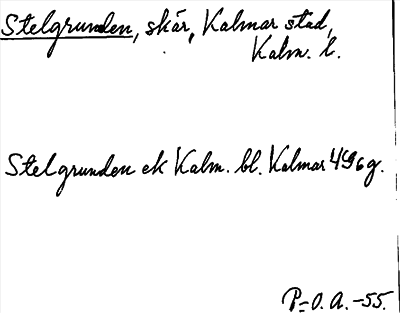 Stelgrunden, skär, Kalmar stad,
Kalm. l.
Stelgrunden ek Kalm. bl. Kalmar 4S6g.
P=O. A. -55.